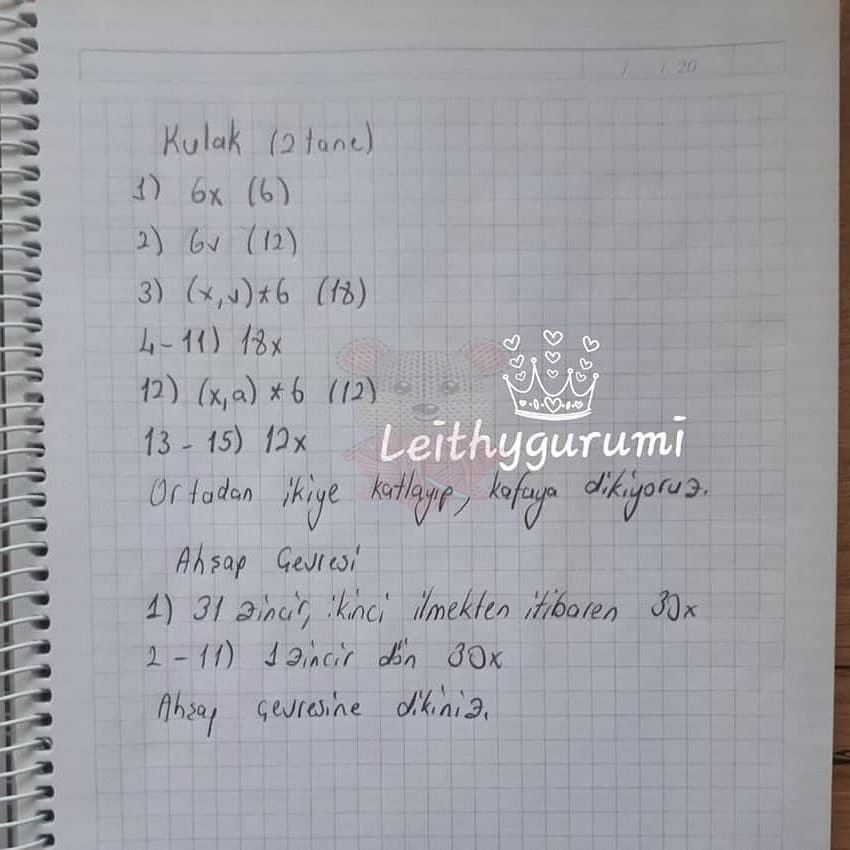 / / 20
Kulak (2 tane)
1) 6x (6)
2) 6v (12)
3) (x,v)*6 (18)
4-11) 18x
12) (x,a)*6 (12)
13-15) 12x
Leithygurumi
Ortadan ikiye katlayıp, kafaya dikiyoruz.
Ahşap Çevresi
1) 31 zincir, ikinci ilmekten itibaren 30x
2-11) 1 zincir dön 30x
Ahşap çevresine dikiniz.